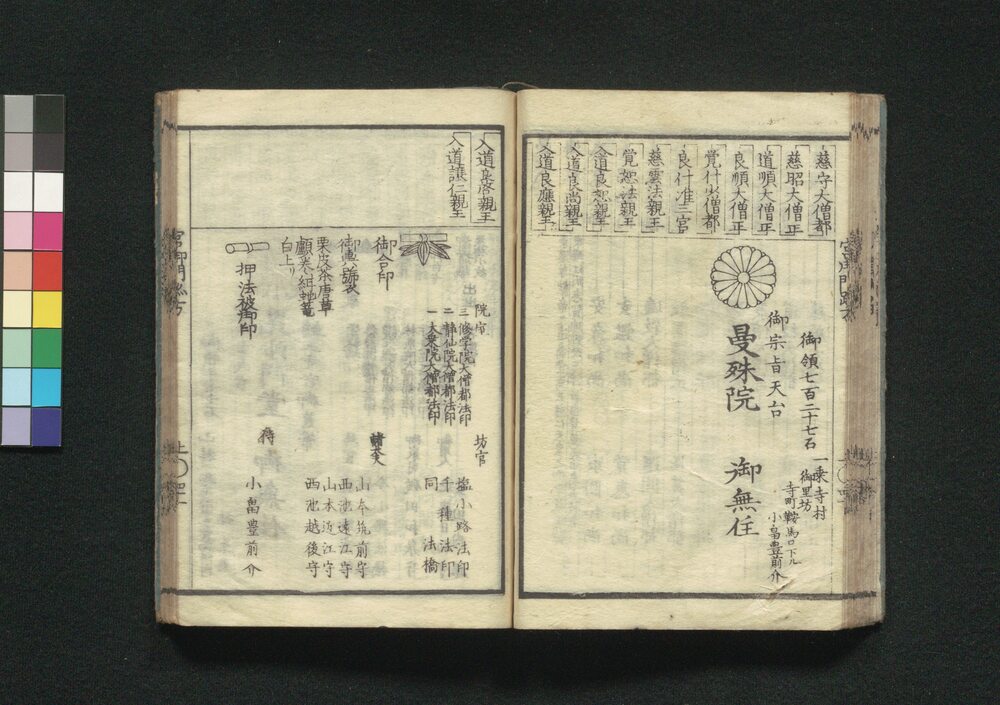 慈守大僧都
慈昭大僧正
道順大僧正
良順大僧正
覚什少僧都
良什准三宮
慈雲法親王
覚恕法親王
入道良恕親王
入道良尚親王
入道良應親王
御領七百二十七石
一乗寺村
御里坊
寺町鞍馬口下ル
小畠豊前介
御宗旨天台
曼殊院
御無住
入道良啓親王
入道譲仁親王
院室
三修学院大僧都法印
二静仙院大僧都法印
一大乗院大僧都法印
坊官
塩小路法印
千種法印
同法橋
諸大夫
山本筑前守
西池遠江守
山本近江守
西池越後守
侍
小畠豊前介
御合印
栗皮茶唐草
白上リ
押法被御印